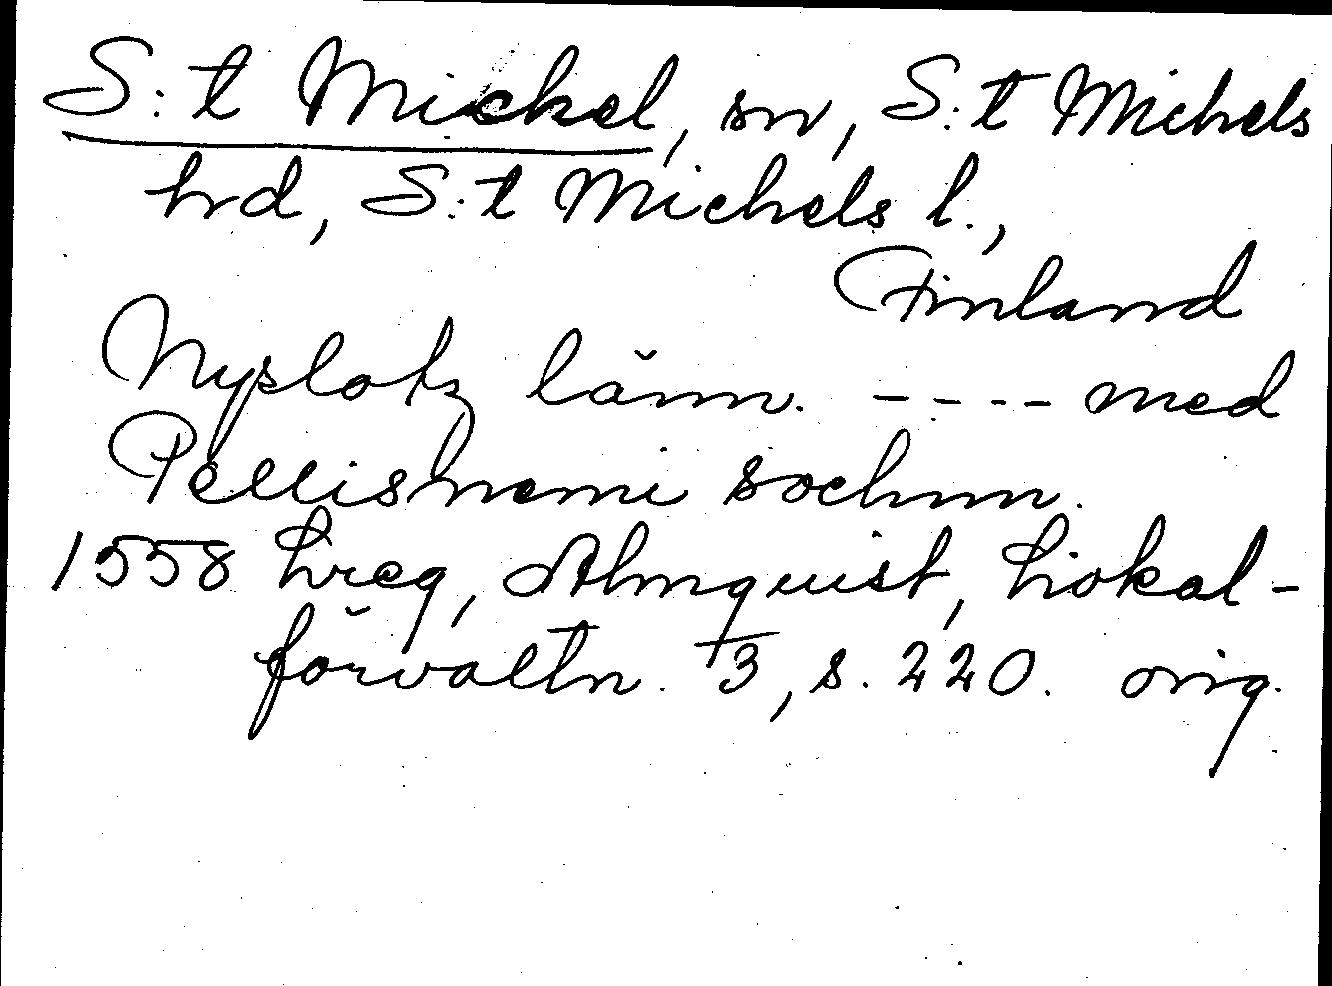 S:t Mickel, sn, S:t Michels
hrd, S:t Michels l.,
Finland
Nyslotz länn. ---- med
Pellisnemi sochnn.
1558 Lreg, Almquist, Lokal-
förvaltn. 3, s. 220. orig.